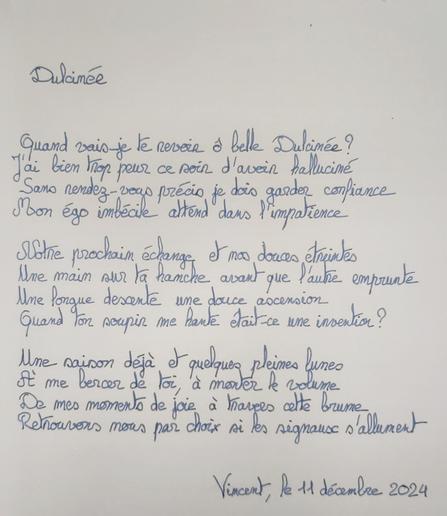 Dulcinée
Quand vais-je te revoir ô belle Dulcinée ?
J'ai bien trop peur ce soir d'avoir halluciné
Sans rendez-vous précis je dois garder confiance
Mon égo imbécile attend dans l'impatience
Notre prochain échange et nos douces étreintes
Une main sur ta hanche avant que l'autre emprunte
Une longue descente une douce ascension
Quand ton soupir me hante était-ce une invention ?
Une saison déjà et quelques pleines lunes
À me bercer de toi, à monter le volume
De mes moments de joie à travers cette brume
Retrouvons nous par choix si les signaux s'allument
Vincent, le 11 décembre 2024